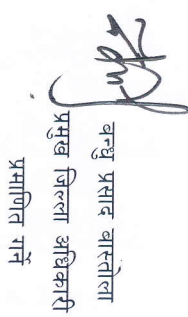 बन्धु प्रसाद बास्तोला
प्रमुख जिल्ला अधिकारी
प्रमाणित गर्ने